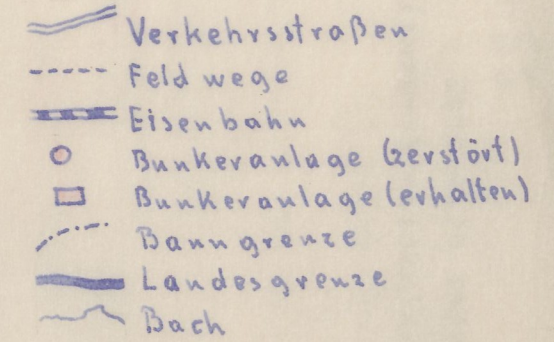 Verkehrsstraßen
Feldwege
Eisenbahn
Bunkeranlage (zerstört)
Bunkeranlage (erhalten)
Banngrenze
Landesgrenze
Bach